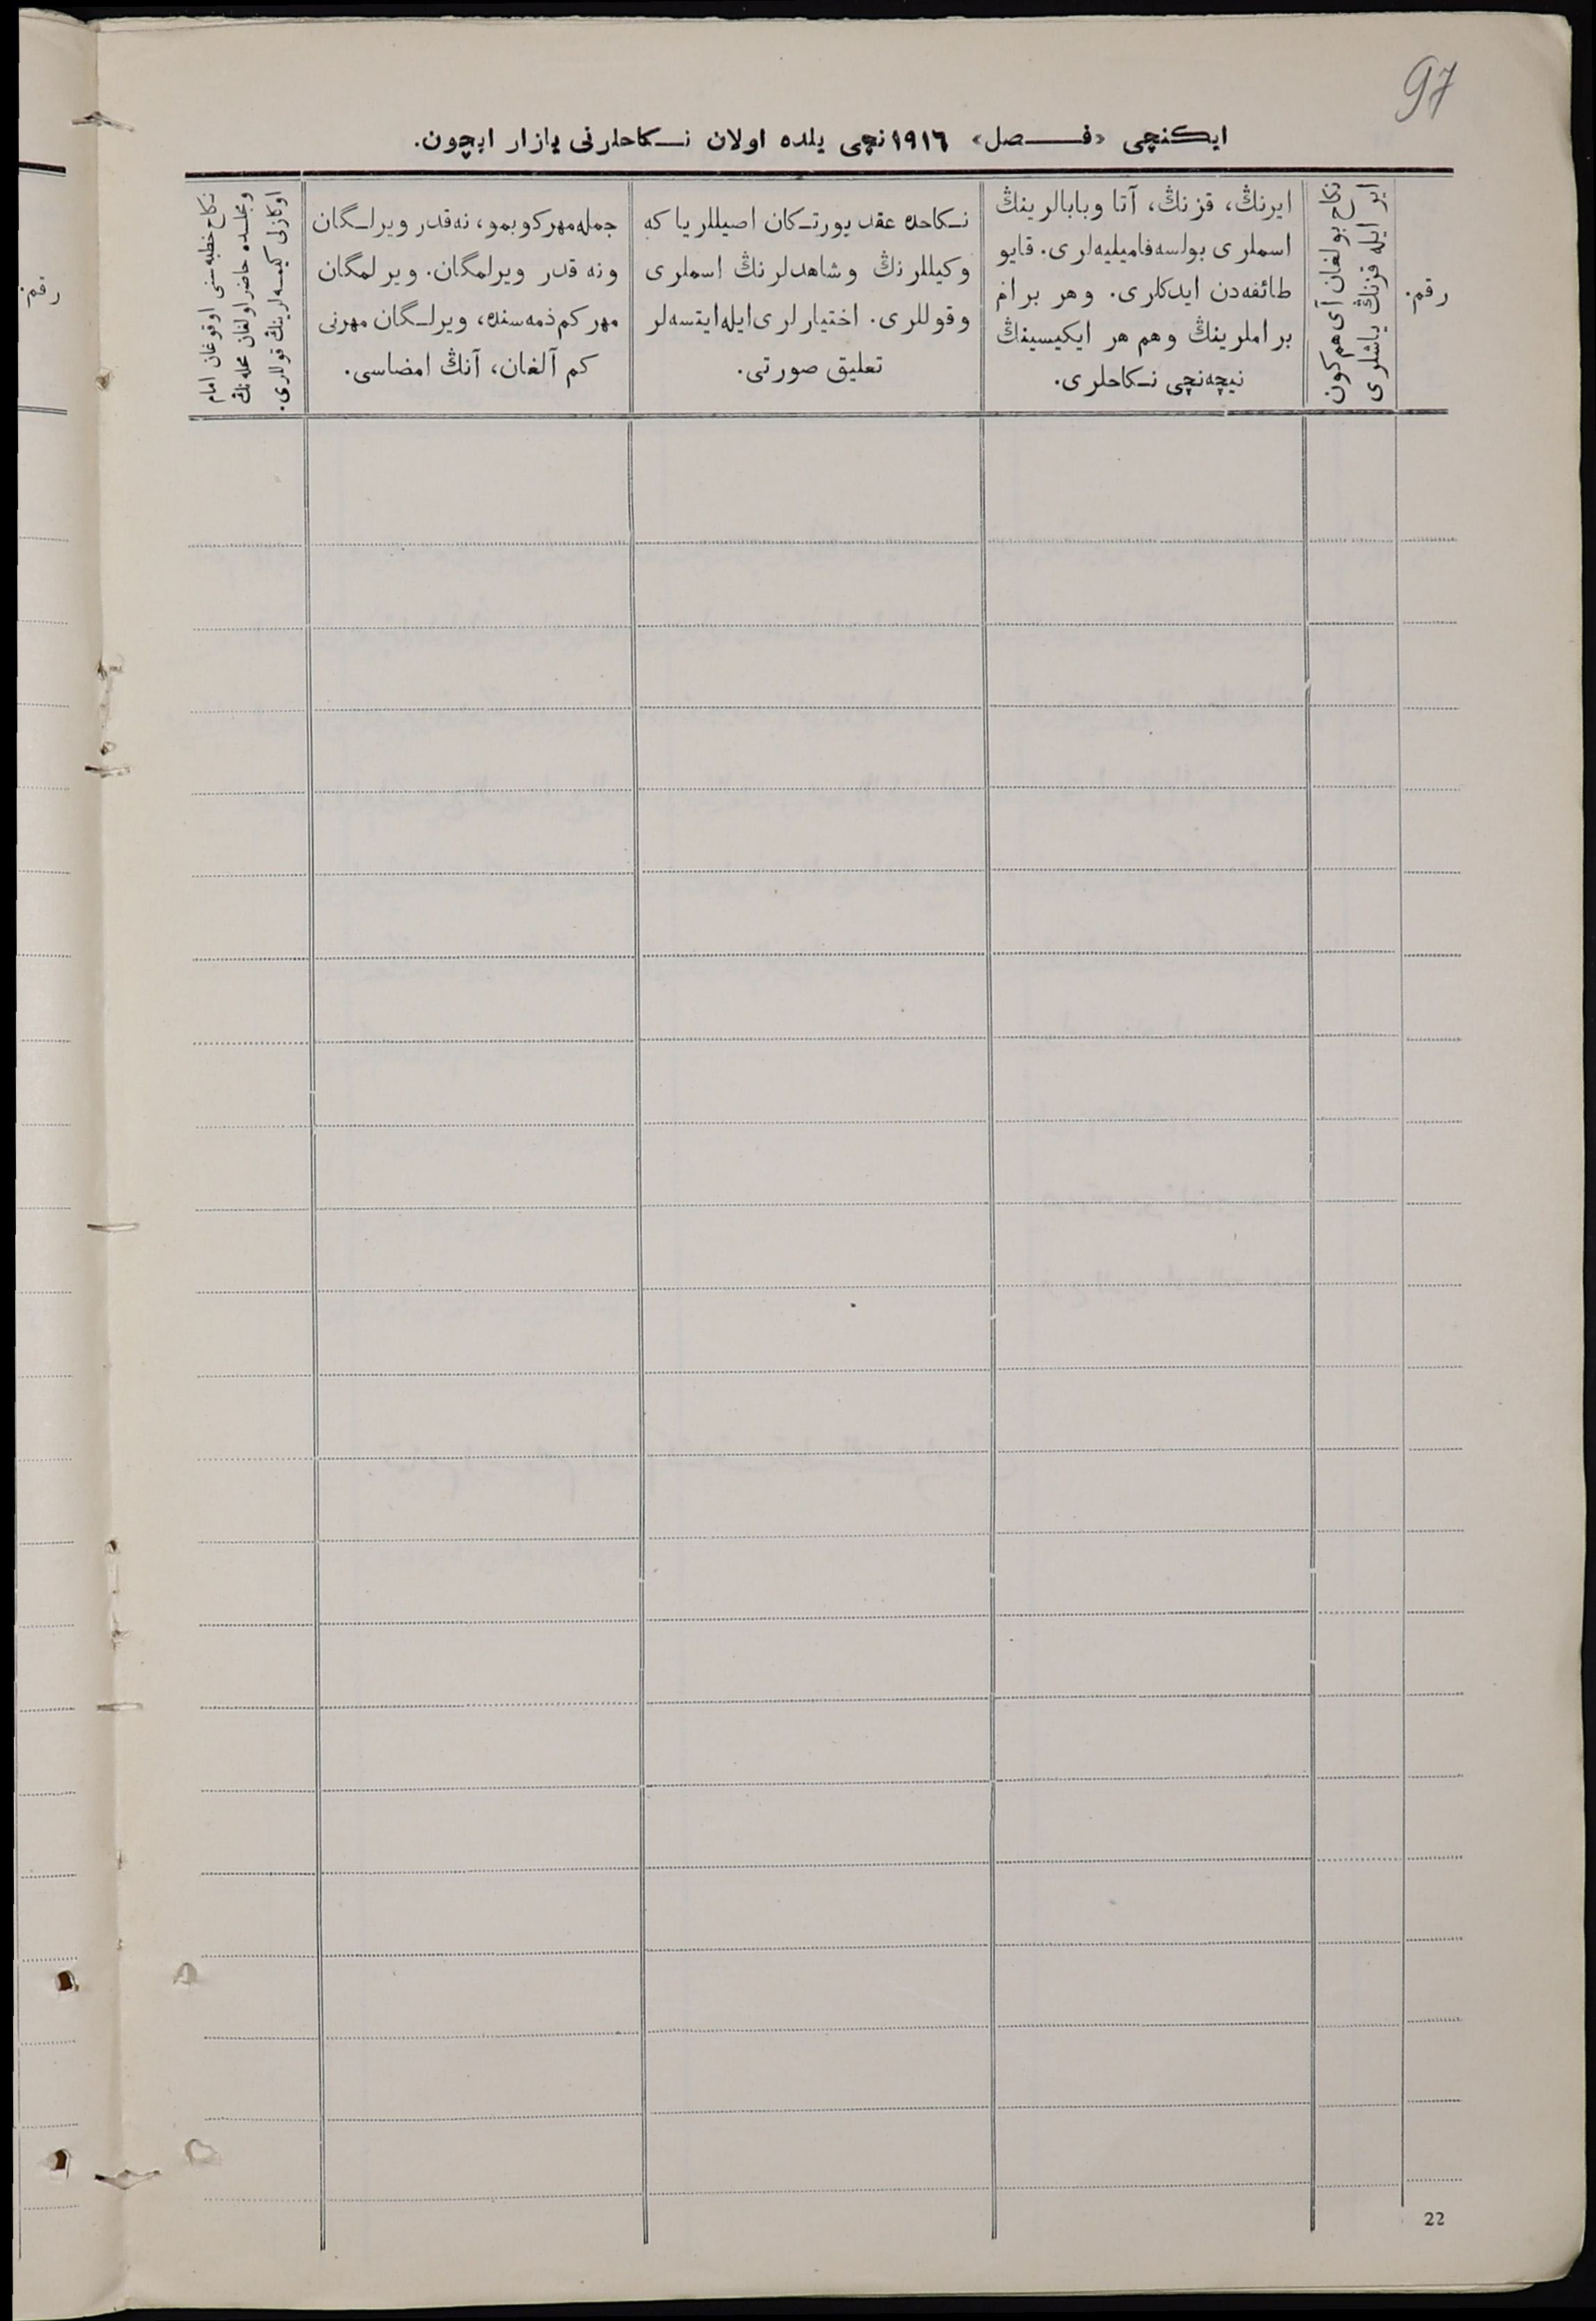 97
ایكنچی «فـــصل» ١٩١٦نچی یلده اولان نـكاحلرنی یازار ایچون.
رقم.
نكاح بولغان آی هم كون
ایر ایله قزنڭ یاشلری
ایرنڭ، قزنڭ، آتا وبابالرینڭ
اسملری بولسه فامیلیه‌لری. قایو
طائفه‌دن ایدكلری. وهر برانڭ
براملرینڭ وهم هر ایكیسینڭ
نیچه‌نچی نـكاحلری.
نـكاحده عقد یورتـكان اصیللر یا كه
وكیللرنڭ وشاهدلرنڭ اسملری
وقوللری. اختیارلری ایله ایتسه‌لر
تعلیق صورتی.
جمله مهر كوبمو، نه‌قدر ویرلـگان
ونه قدر ویرلمگان. ویرلمگان
مهر كم ذمه‌سنده، ویرلـگان مهرنی
كم آلغان، آنڭ امضاسی.
نكاح خطبه‌سنی اوقوغان امام
ومجلسده حاضر اولغان محله‌نڭ
اوكازلی كیمسه‌لرینڭ قوللری.
رقم.
22